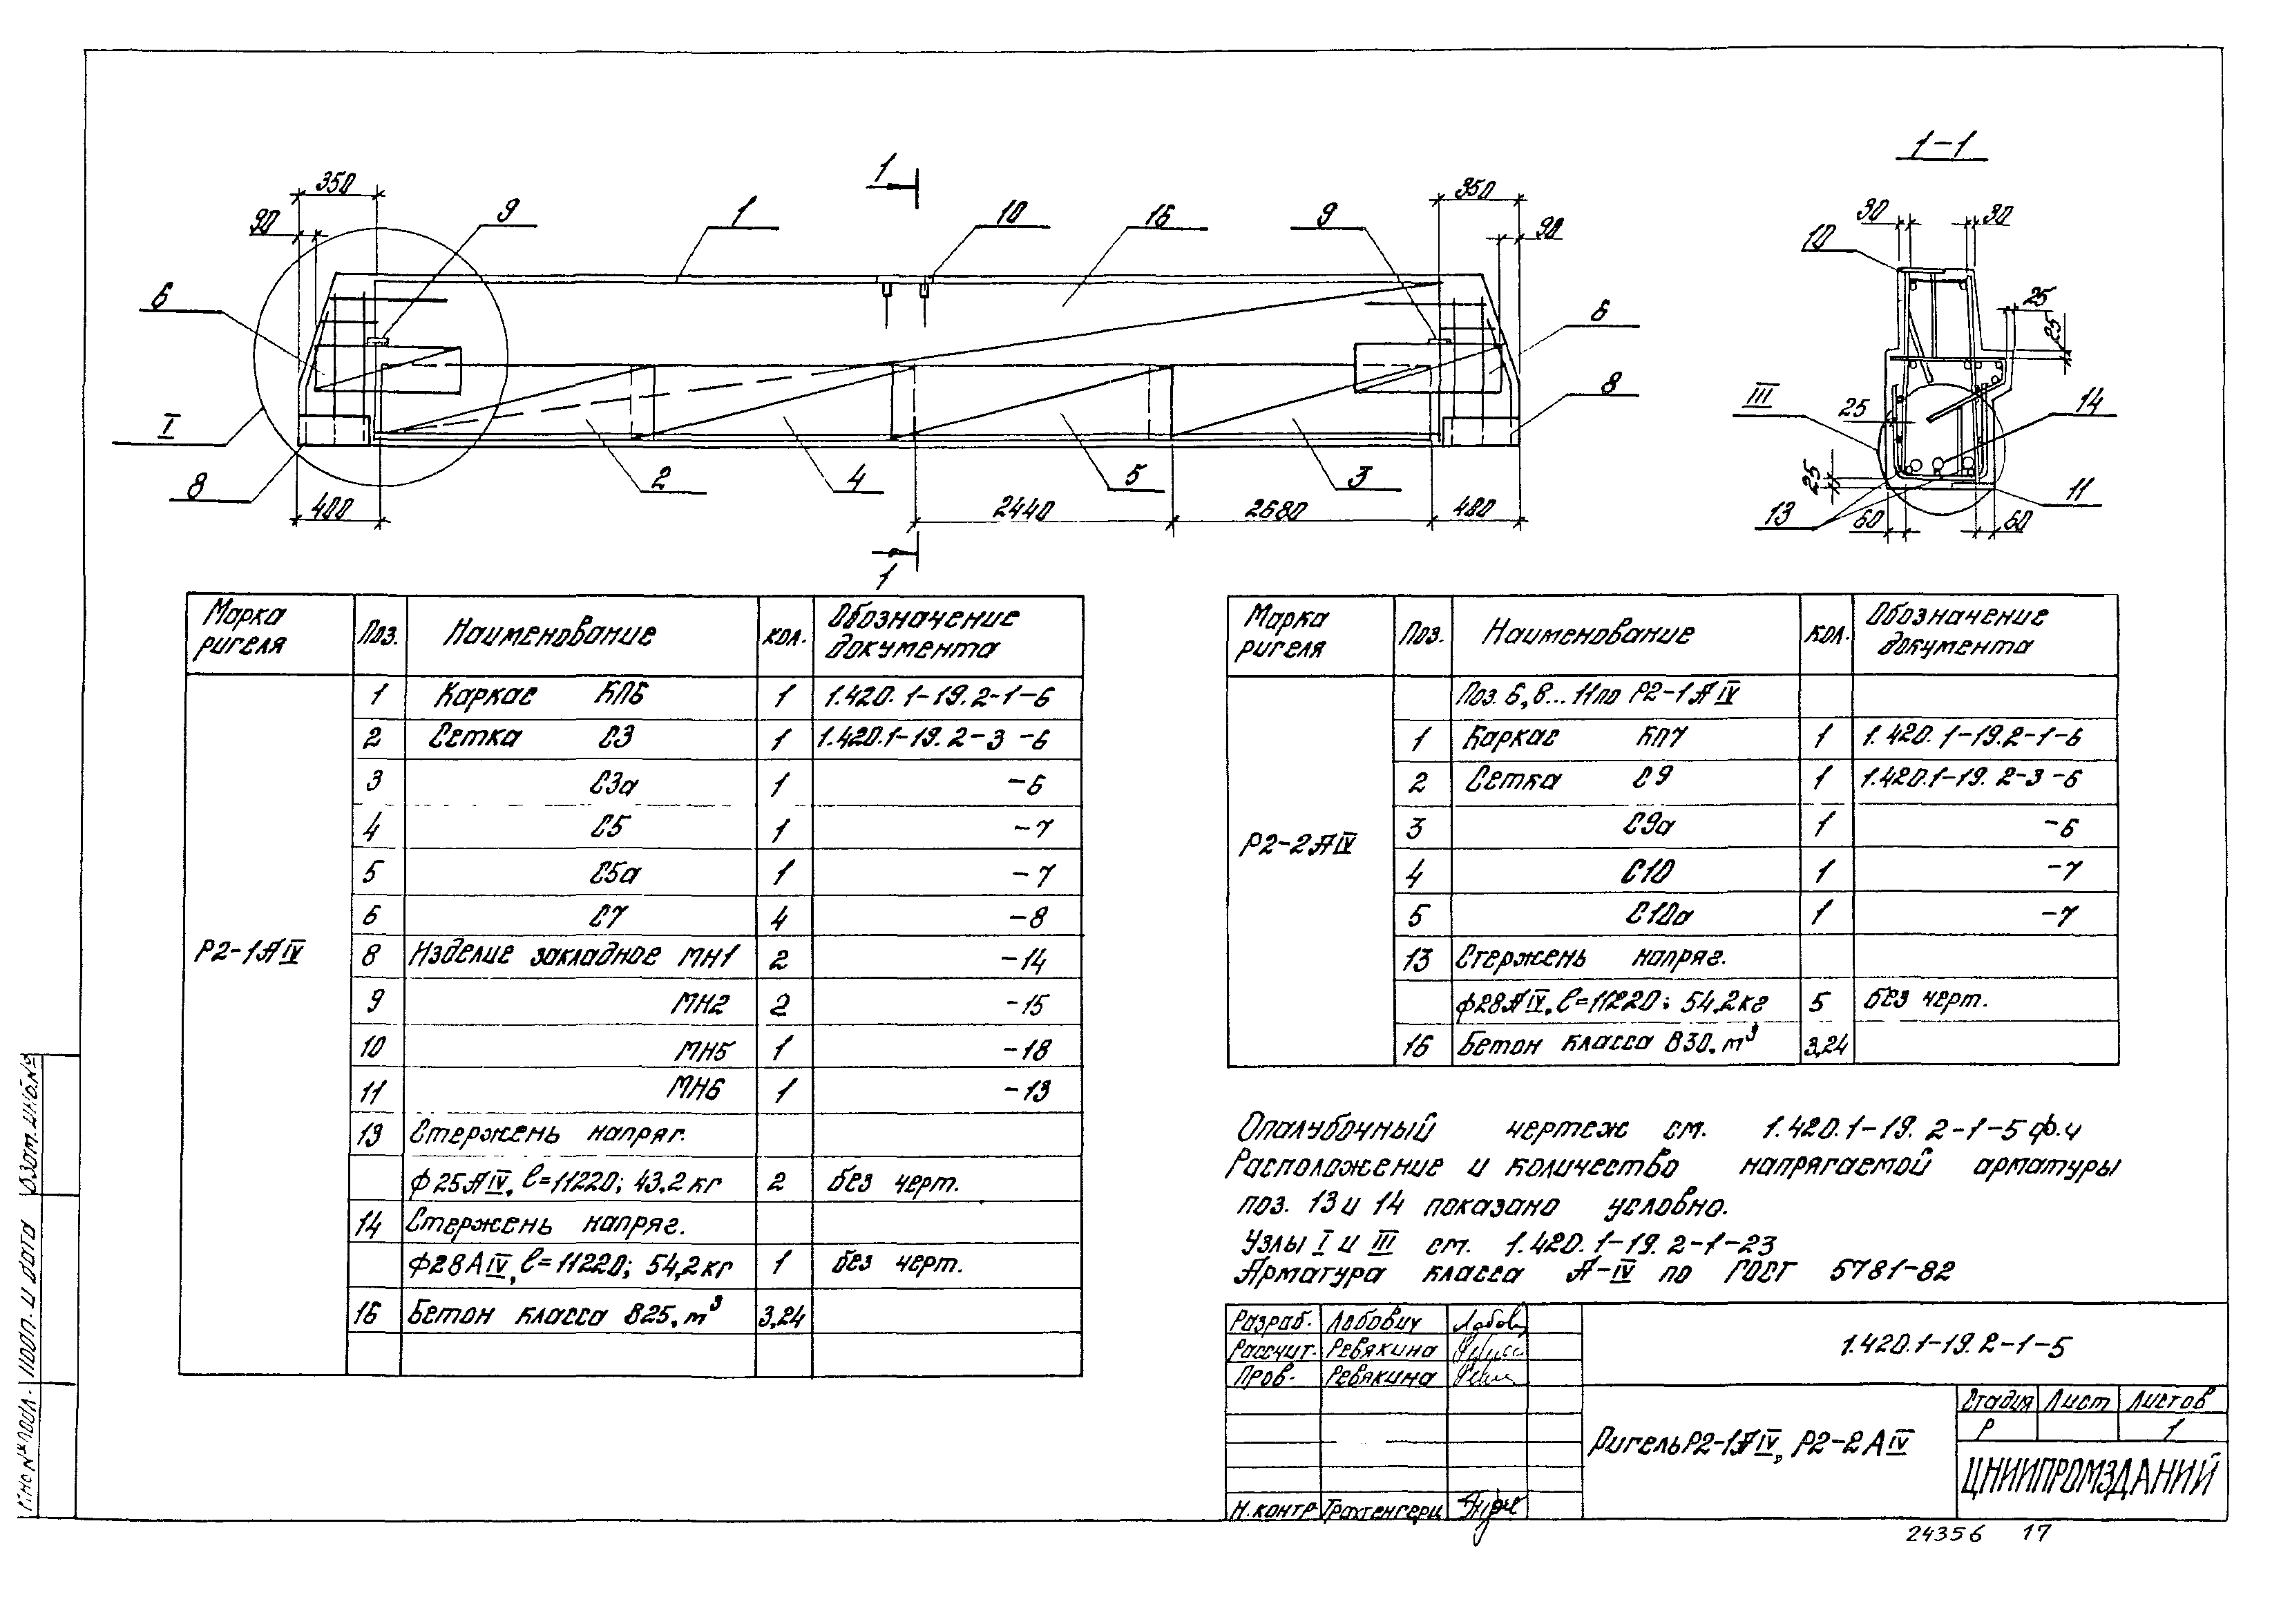 1
1-1
350
90
9
1
10
16
9
350
90
6
I
8
400
2
4
5
3
2440
2680
480
6
8
1
30
30
10
25
25
III
25
14
25
13
60
60
11
Марка ригеля Поз. Наименование кол. Обозначение документа
Р2-1АIV
1 Каркас КП6 1 1.420.1-19.2-1-6
2 Сетка С3 1 1.420.1-19.2-3-6
3 С3а 1 -6
4 С5 1 -7
5 С5а 1 -7
6 С7 4 -8
8 Изделие закладное МН1 2 -14
9 МН2 2 -15
10 МН5 1 -18
11 МН6 1 -19
13 Стержень напряг.
ф25АIV, l=11220; 43,2кг 2 без черт.
14 Стержень напряг.
ф28АIV, l=11220; 54,2кг 1 без черт.
16 Бетон класса В25, m³ 3,24
Марка ригеля Поз. Наименование кол. Обозначение документа
Р2-2АIV
Поз. 6,8...11 по Р2-1АIV
1 Каркас КП7 1 1.420.1-19.2-1-6
2 Сетка С9 1 1.420.1-19.2-3-6
3 С9а 1 -6
4 С10 1 -7
5 С10а 1 -7
13 Стержень напряг.
ф28АIV, l=11220; 54,2кг 5 без черт.
16 Бетон класса В30, m³ 3,24
Опалубочный чертеж см. 1.420.1-19.2-1-5ф.ч
Расположение и количество напрягаемой арматуры
поз. 13 и 14 показано условно.
Узлы I и III см. 1.420.1-19.2-1-23
Арматура класса А-IV по ГОСТ 5781-82
Разраб. Лобович
Рассчит. Ревякина
Пров. Ревякина
Н.контр Трахтенгерц
1.420.1-19.2-1-5
Ригель Р2-1АIV, Р2-2АIV
Стадия Лист Листов
Р 1
ЦНИИПРОМЗДАНИЙ
24356 17
Взам. инв.№
Подп. и дата
Инв № подл.